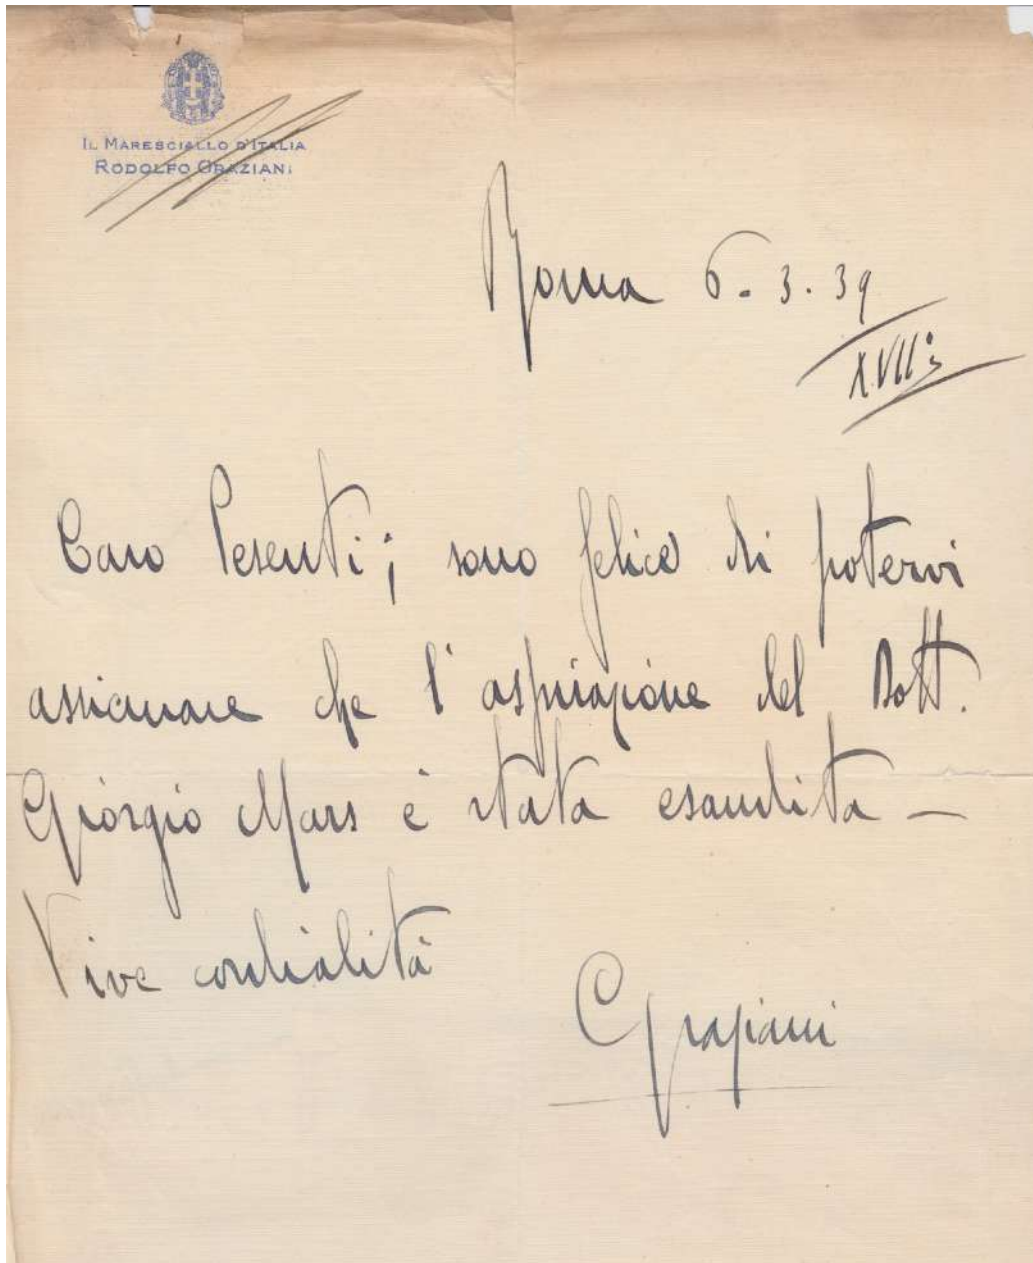 IL MARESCIALLO D'ITALIA
RODOLFO GRAZIANI
Roma 6.3.39
XVII°
Caro Pesenti; sono felice di potervi
assicurare che l'aspirazione del Dott.
Giorgio Mars è stata esaudita —
Vive cordialità
Graziani